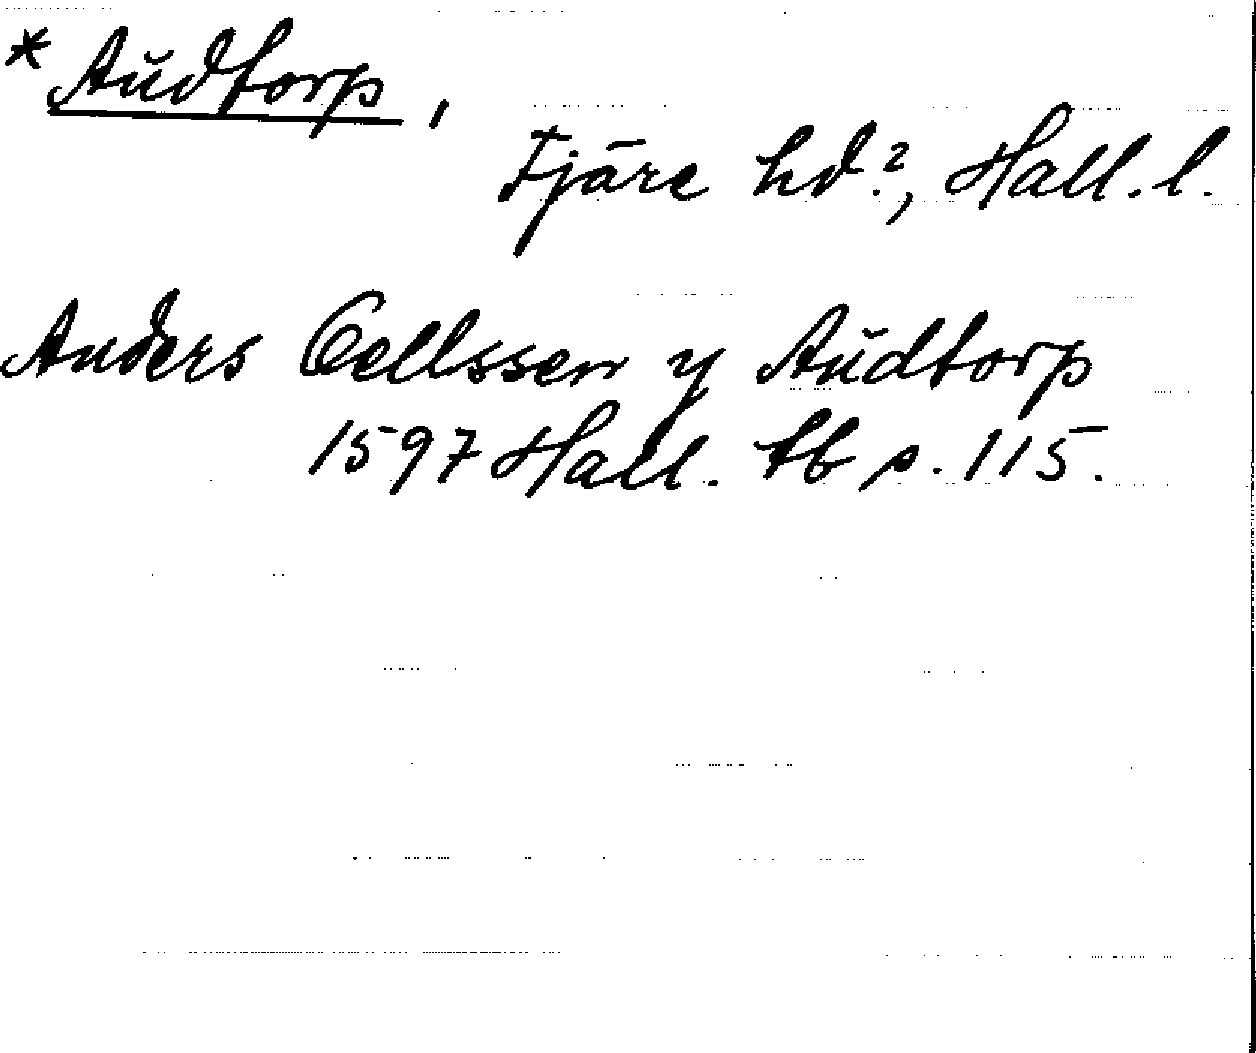 * Aŭdtorp,
Fjäre hd.?, Hall. l.
Anders Oellssen y Aŭdtorp
1597 Hall. tb p. 115.